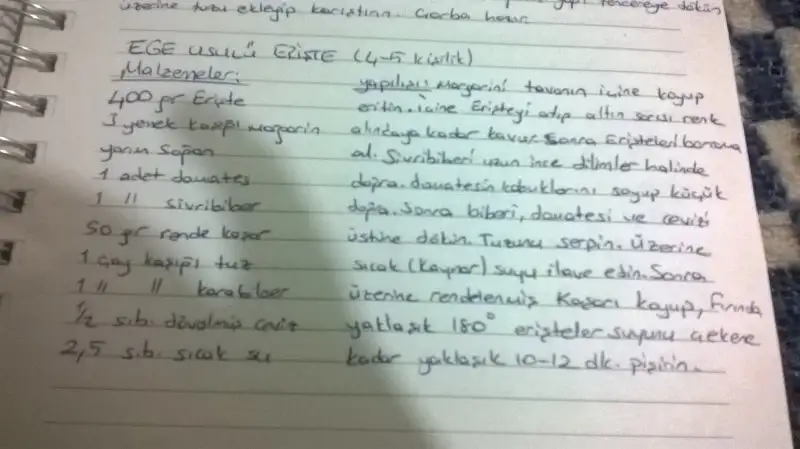 yapı tencereye dökün
üzerine tuzu ekleyip karıştırın. Çorba hazır.
EGE USULÜ ERİŞTE (4-5 kişilik)
Malzemeler:
400 gr Erişte
3 yemek kaşığı margarin
yarım soğan
1 adet domates
1 " sivribiber
50 gr rende kaşar
1 çay kaşığı tuz
1 " " karabiber
1/2 s.b. dövülmüş ceviz
2,5 s.b. sıcak su
yapılışı Margarini tavanın içine koyup
eritin. içine Erişteyi atıp altın sarısı renk
alıncaya kadar kavur. Sonra Erişteleri borcama
al. Sivribiberi uzun ince dilimler halinde
doğra. domatesin kabuklarını soyup küçük
doğra. Sonra biberi, domatesi ve cevizi
üstüne dökün. Tuzunu serpin. Üzerine
sıcak (kaynar) suyu ilave edin. Sonra
üzerine rendelenmiş Kaşarı koyup, fırında
yaklaşık 180° erişteler suyunu çekene
kadar yaklaşık 10-12 dk. pişirin.